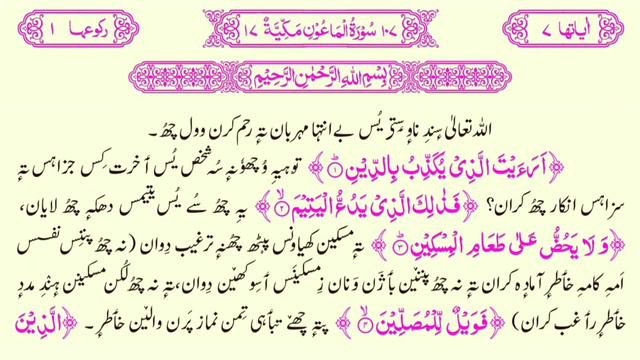 اٰیاتھا ۷ ۱۰۷ سُوْرَۃُ الْمَاعُوْنِ مَكِّيَّةٌ ۱۷ رکوعہا ۱
بِسْمِ اللهِ الرَّحْمٰنِ الرَّحِيْمِ
اللہ تعالیٰ سٕنٛدِ ناوٕ ستۍ یُس بے انتہا مہربان تہٕ رحم کرن وول چھُ۔
﴿اَرَءَيْتَ الَّذِىْ يُكَذِّبُ بِالدِّيْنِ ۱﴾ توہیہِ وُچھوٗنہٕ سُہ شخص یُس آخرت کِس جزاہس تہٕ
سزاہس انکار چھُ کران؟ ﴿فَذٰلِكَ الَّذِىْ يَدُعُّ الْيَتِيْمَ ۲﴾ یہِ چھُ سُے یُس یتیمس دھکہٕ چھُ لایان،
﴿وَلَا يَحُضُّ عَلٰى طَعَامِ الْمِسْكِيْنِ ۳﴾ تہٕ مسکین کھیاونس پٮ۪ٹھ چھُنہٕ ترغیب دِوان (نہ چھُ پننِس نفسس
اَمہِ کامہِ خٲطرٕ آمادٕہ کران تہٕ نہ چھُ پننین باژن وَنان زِ مسکینَس أسۍ کھٮ۪ن دِوان، تہٕ نہ چھُ لُکن مسکینن ہٕنٛدِ مدد
خٲطرٕ راغب کران) ﴿فَوَيْلٌ لِّلْمُصَلِّيْنَ ۴﴾ پتہٕ چھےٚ تباہی تِمن نماز پَرن والٮ۪ن خٲطرٕ۔ ﴿الَّذِيْنَ